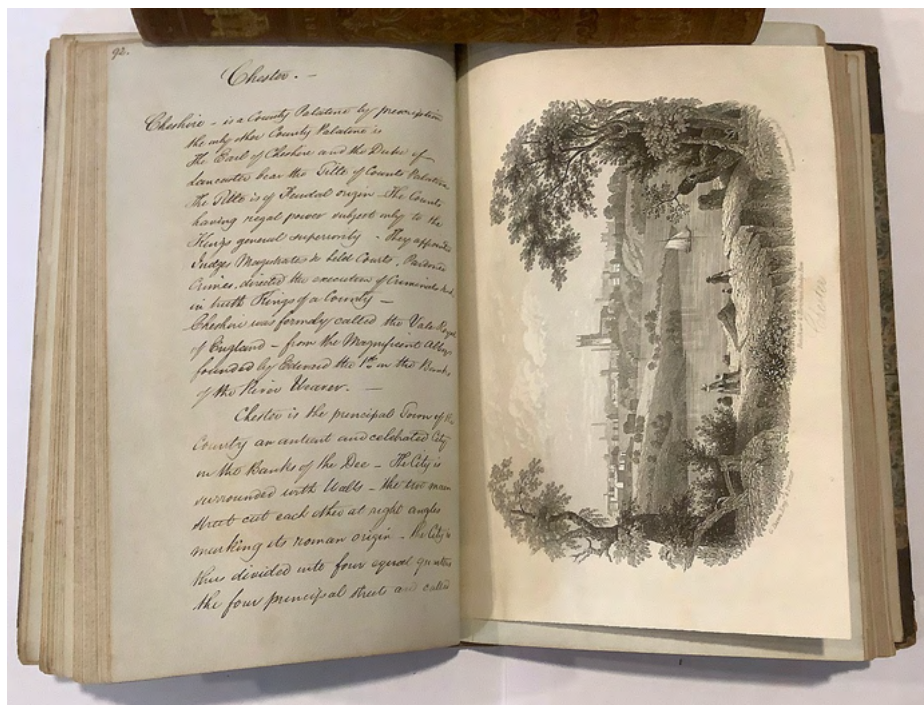 92.
Chester. —
Cheshire – is a County Palatine by prescription
the only other County Palatine is
The Earl of Cheshire and the Duke of
Lancaster bear the Title of Counts Palatine
The Title is of Feudal origin – The Counts
having regal power subject only to the
Kings general superiority – They appointed
Judges Magistrates & held Courts, Pardoned
Crimes, directed the execution of Criminals
in truth Kings of a County —
Cheshire was formdy called the Vale Royal
of England – from the Magnificent Abbey
founded by Edward the 1st on the Banks
of the River Weaver. —
Chester is the principal Town of the
County an antient and celebrated City
on the Banks of the Dee – The City is
surrounded with Walls – the two main
street cut each other at right angles
marking its roman origin – the City is
thus divided into four equal quarters
the four principal streets are called
Chester